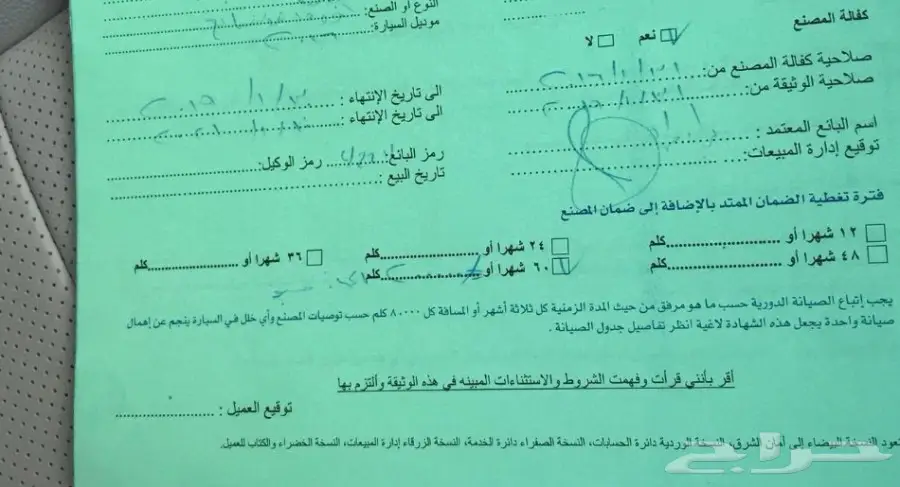 كفالة المصنع
نعم
لا
النوع أو الصنع:
موديل السيارة:
صلاحية كفالة المصنع من: ٢٠١٦/١/٣١
الى تاريخ الإنتهاء : ٢٠١٩/١/٣٠
صلاحية الوثيقة من:
الى تاريخ الإنتهاء :
اسم البائع المعتمد :
رمز البائع:
رمز الوكيل:
توقيع إدارة المبيعات:
تاريخ البيع :
فترة تغطية الضمان الممتد بالإضافة إلى ضمان المصنع
١٢ شهرا أو كلم
٢٤ شهرا أو كلم
٣٦ شهرا أو كلم
٤٨ شهرا أو كلم
٦٠ شهرا أو كلم
يجب إتباع الصيانة الدورية حسب ما هو مرفق من حيث المدة الزمنية كل ثلاثة أشهر أو المسافة كل ٨٠٠٠ كلم حسب توصيات المصنع وأي خلل في السيارة ينجم عن إهمال
صيانة واحدة يجعل هذه الشهادة لاغية انظر تفاصيل جدول الصيانة .
أقر بأنني قرأت وفهمت الشروط والاستثناءات المبينه في هذه الوثيقة وألتزم بها
توقيع العميل :
تعود النسخة البيضاء إلى أمان الشرق، النسخة الوردية دائرة الحسابات، النسخة الصفراء دائرة الخدمة، النسخة الزرقاء إدارة المبيعات، النسخة الخضراء والكتاب للعميل.
حراج